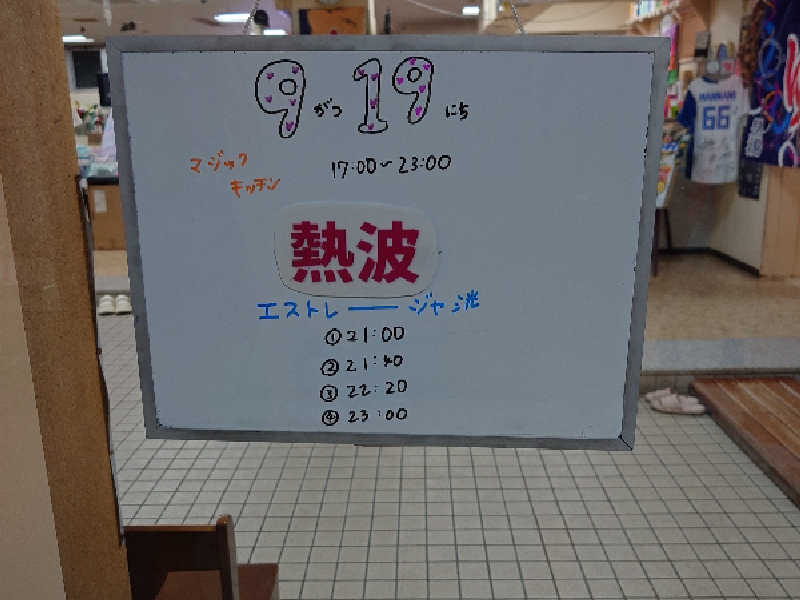 9がつ19にち
マジック
キッチン
17:00~23:00
熱波
エストレージャ洸
①21:00
②21:40
③22:20
④23:00
66